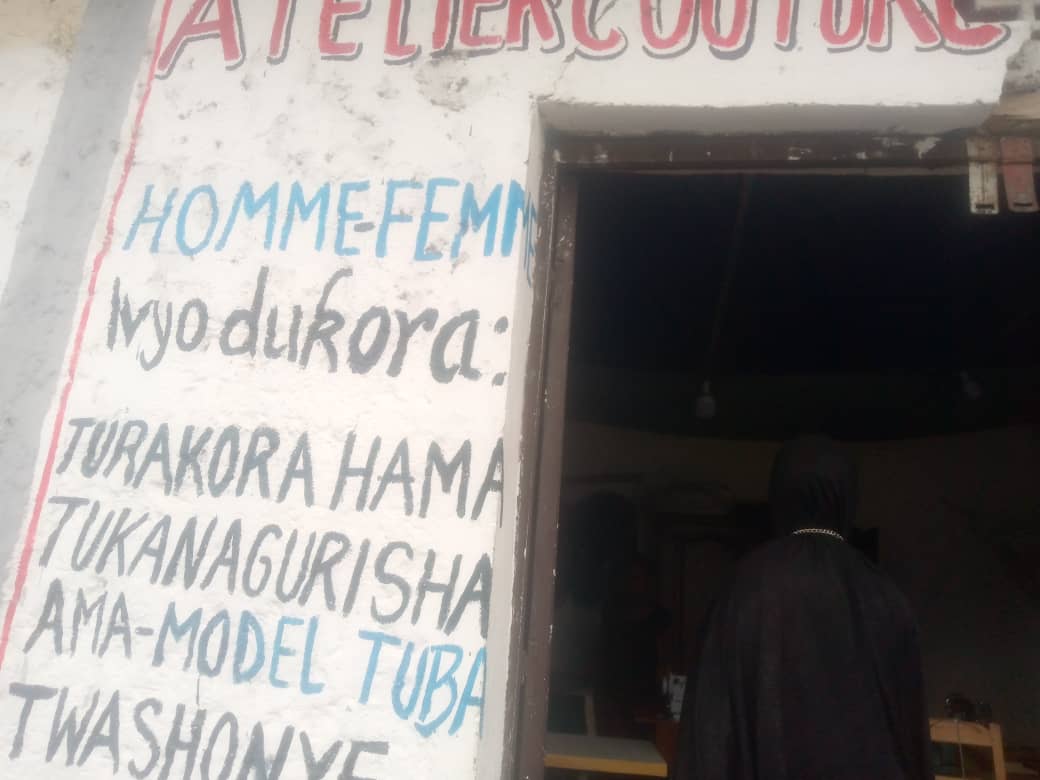 ATELIER COUTURE
HOMME-FEMME
Ivyo dukora:
TURAKORA HAMA
TUKANAGURISHA
AMA-MODEL TUBA
TWASHONYE